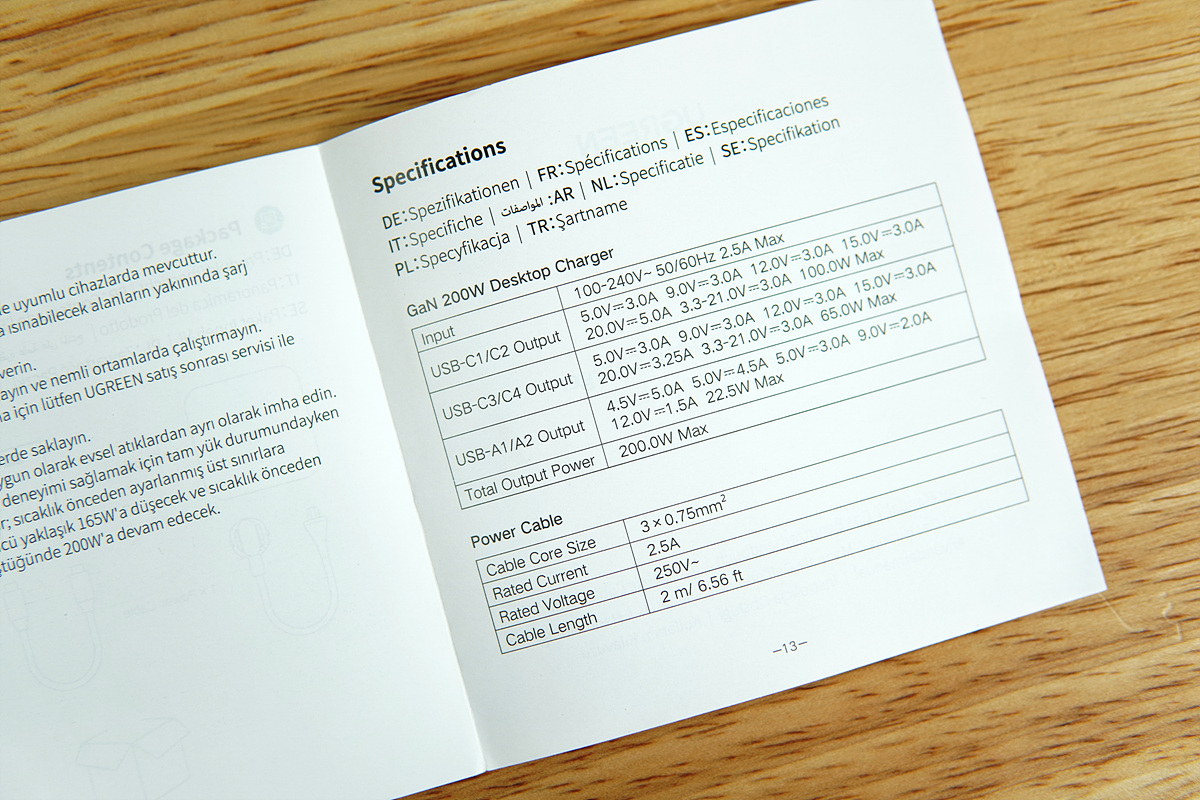 le uyumlu cihazlarda mevcuttur.
a ısınabilecek alanların yakınında şarj
verin.
ayın ve nemli ortamlarda çalıştırmayın.
na için lütfen UGREEN satış sonrası servisi ile
erde saklayın.
ygun olarak evsel atıklardan ayrı olarak imha edin.
deneyimi sağlamak için tam yük durumundayken
r; sıcaklık önceden ayarlanmış üst sınırlara
cü yaklaşık 165W'a düşecek ve sıcaklık önceden
ştüğünde 200W'a devam edecek.
Specifications
DE:Spezifikationen | FR:Spécifications | ES:Especificaciones
IT:Specifiche | المواصفات :AR | NL:Specificatie | SE:Specifikation
PL:Specyfikacja | TR:Şartname
GaN 200W Desktop Charger
Input 100-240V~ 50/60Hz 2.5A Max
USB-C1/C2 Output 5.0V⎓3.0A 9.0V⎓3.0A 12.0V⎓3.0A 15.0V⎓3.0A
20.0V⎓5.0A 3.3-21.0V⎓3.0A 100.0W Max
USB-C3/C4 Output 5.0V⎓3.0A 9.0V⎓3.0A 12.0V⎓3.0A 15.0V⎓3.0A
20.0V⎓3.25A 3.3-21.0V⎓3.0A 65.0W Max
USB-A1/A2 Output 4.5V⎓5.0A 5.0V⎓4.5A 5.0V⎓3.0A 9.0V⎓2.0A
12.0V⎓1.5A 22.5W Max
Total Output Power 200.0W Max
Power Cable
Cable Core Size 3×0.75mm²
Rated Current 2.5A
Rated Voltage 250V~
Cable Length 2 m/ 6.56 ft
–13–